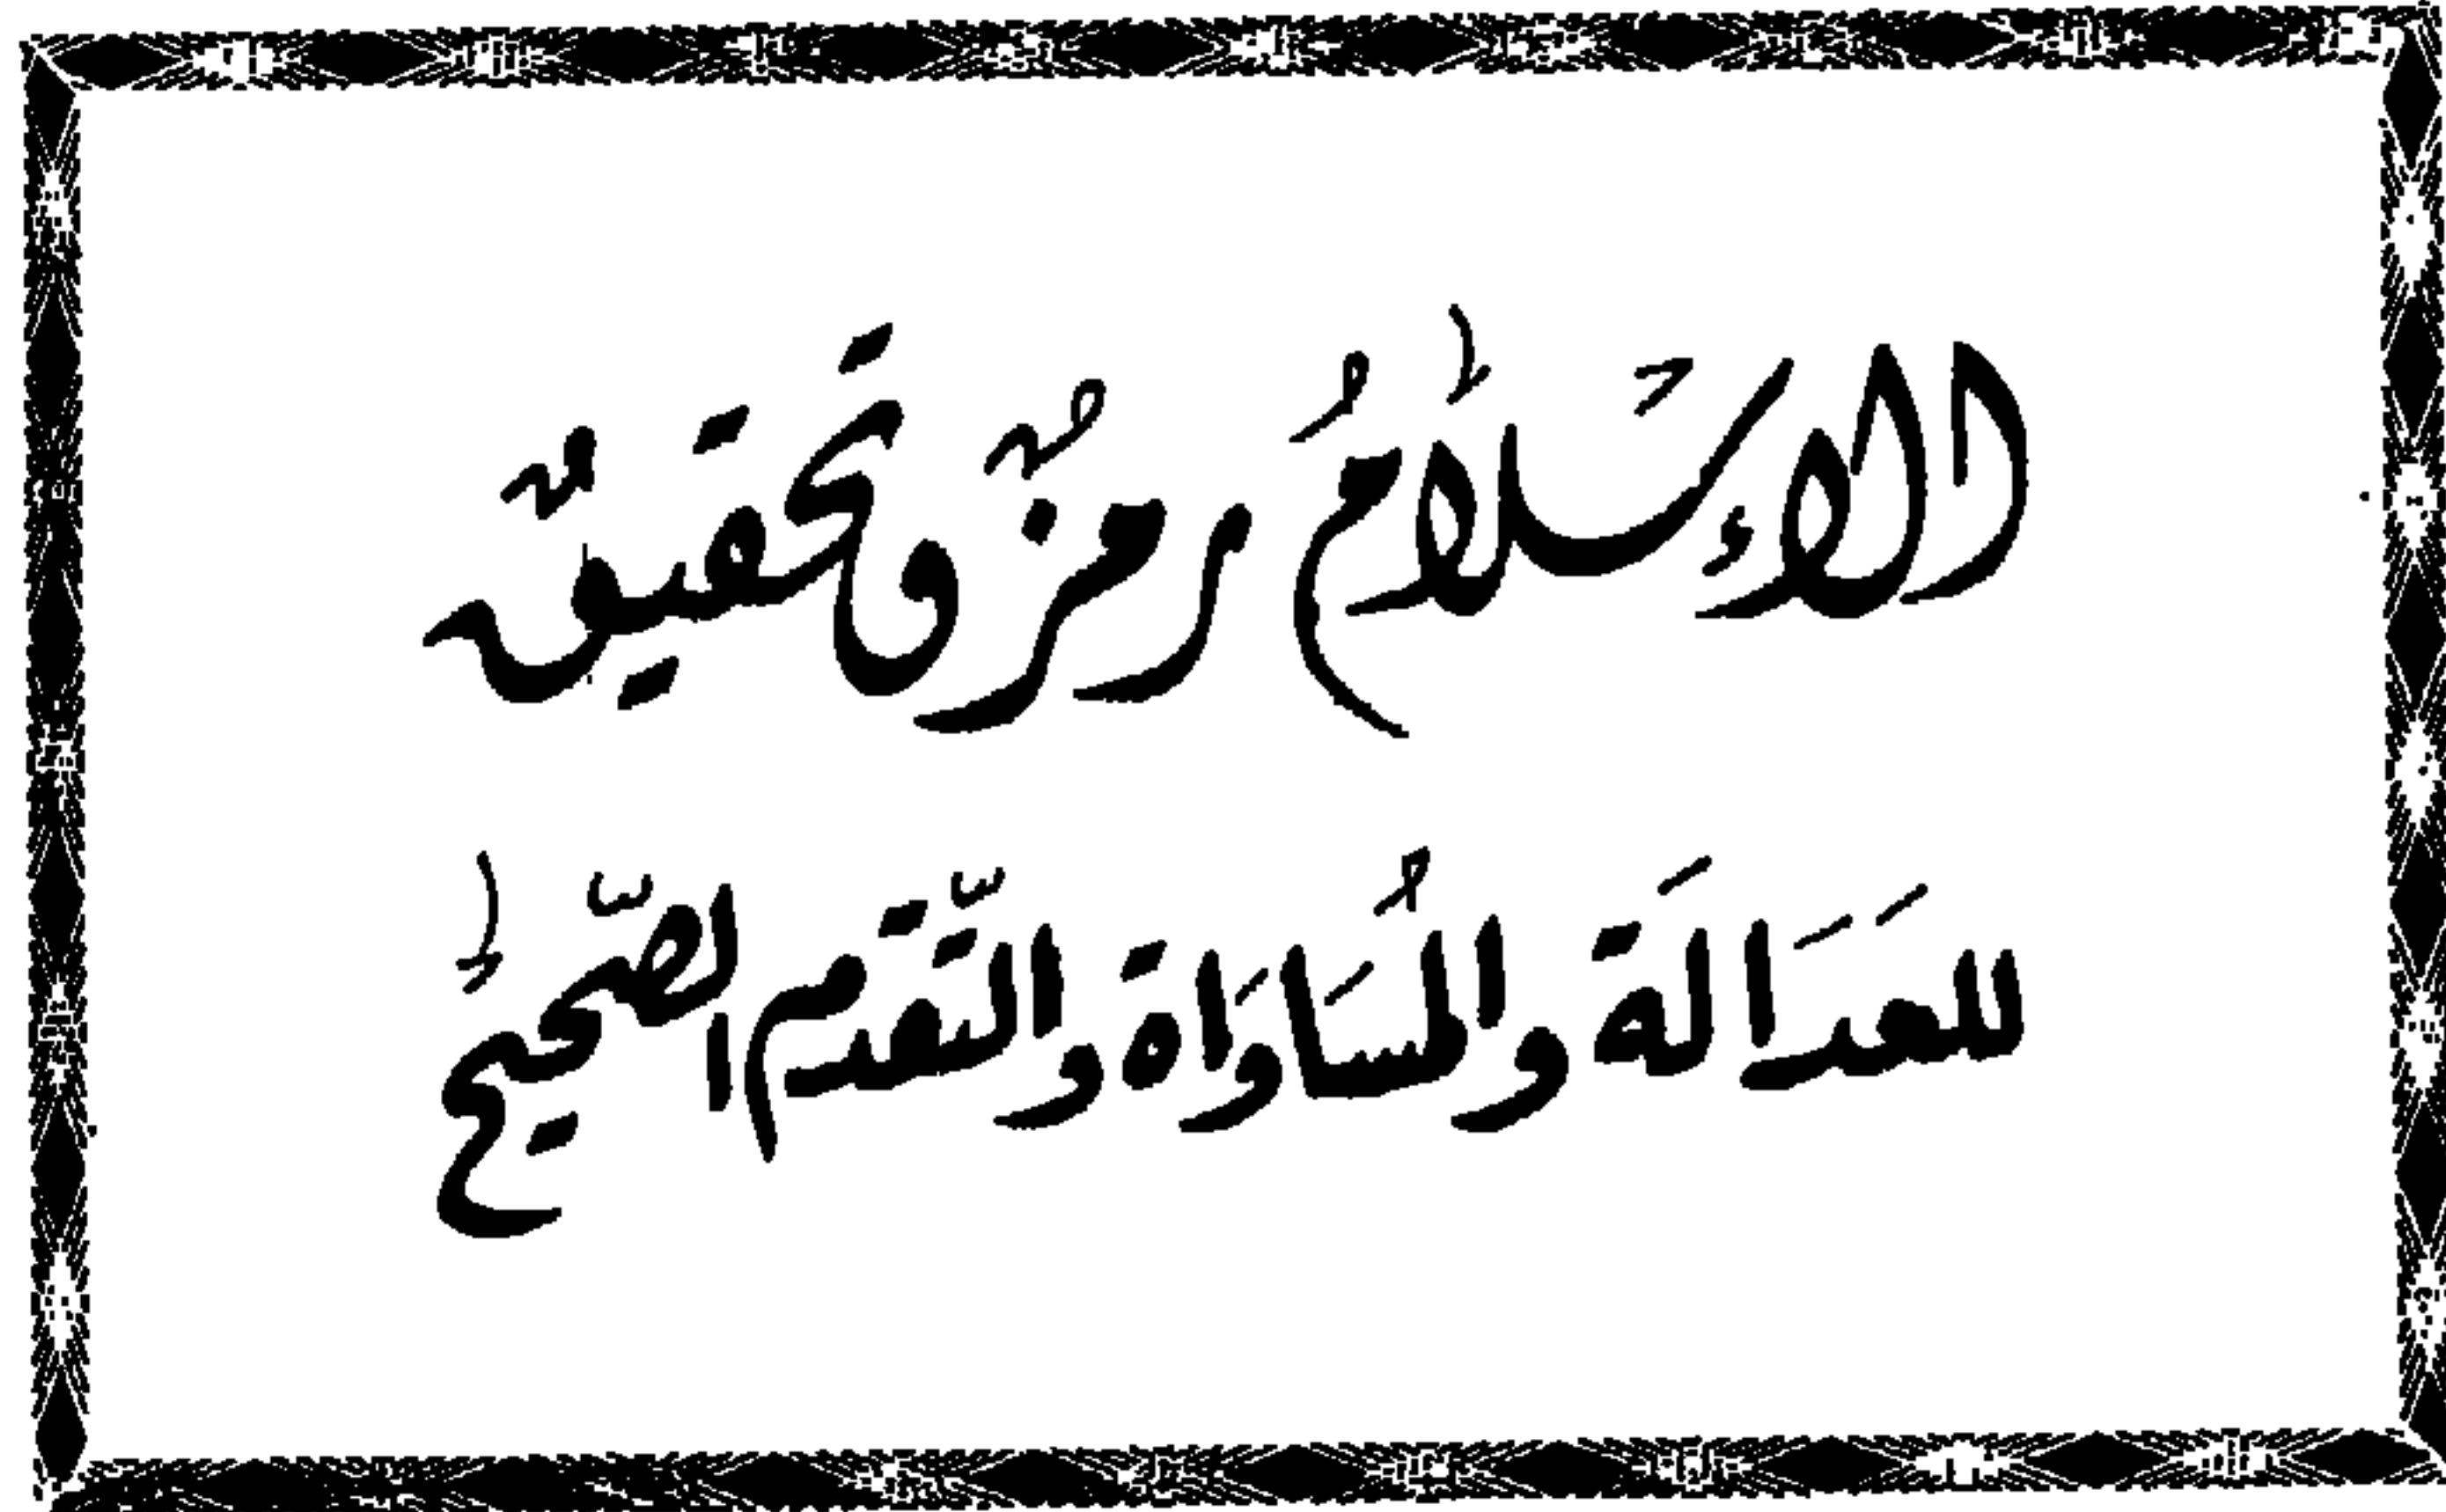 الإسلامُ رمزٌ وتحقيقٌ
للعَدَالَة والمُسَاوَاة والتّقدم الصّحيح